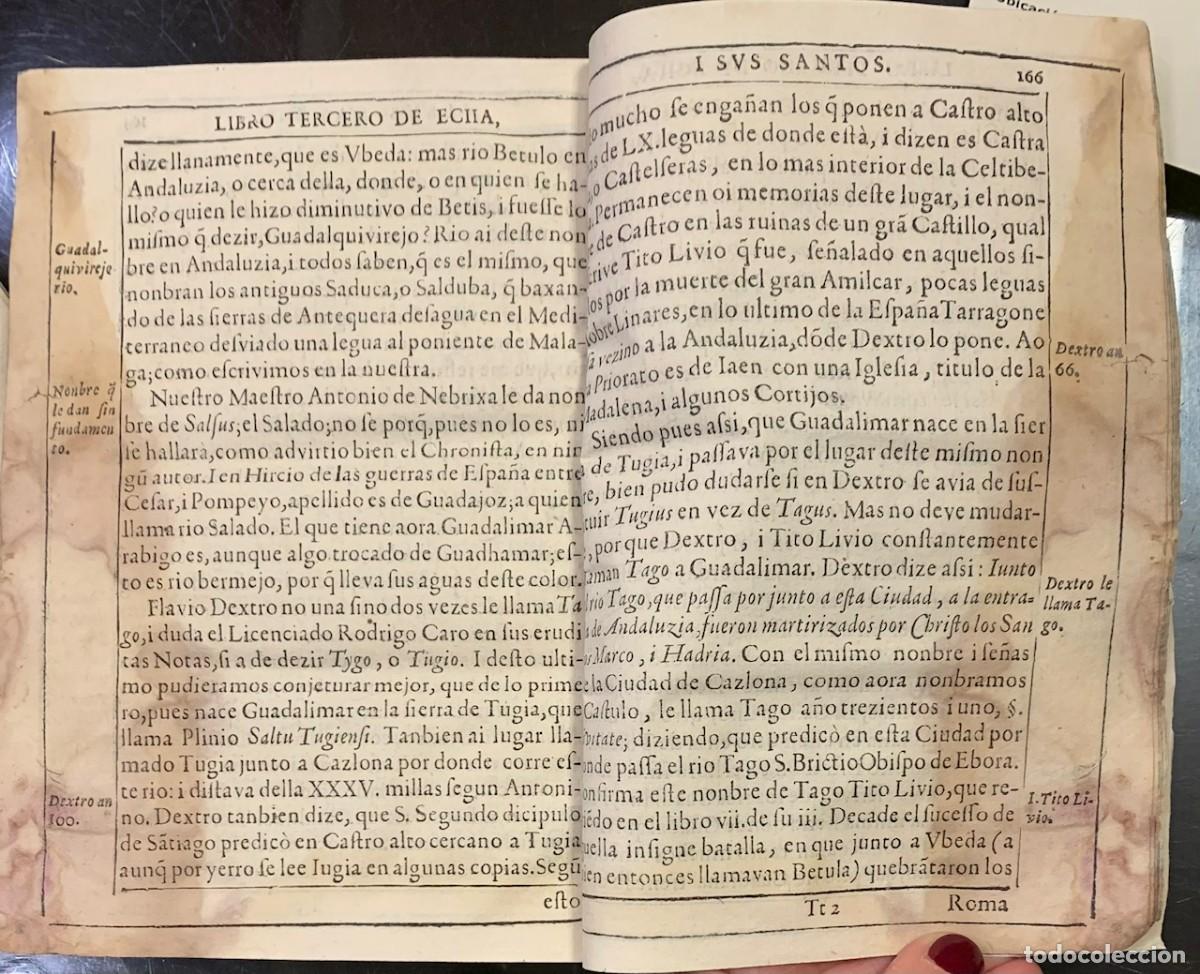 LIBRO TERCERO DE ECIIA,
dize llanamente, que es Vbeda: mas rio Betulo en
Andaluzia, o cerca della, donde, o en quien ſe ha-
llo? o quien le hizo diminutivo de Betis, i fueſſe lo
miſmo q̃ dezir, Guadalquivirejo? Rio ai deſte non
bre en Andaluzia, i todos ſaben, q̃ es el miſmo, que
nonbran los antiguos Saduca, o Salduba, q̃ baxan-
do de las ſierras de Antequera deſagua en el Medi-
terraneo deſviado una legua al poniente de Mala-
ga; como eſcrivimos en la nueſtra.
Nueſtro Maeſtro Antonio de Nebrixa le da non
bre de Salſus; el Salado; no ſe porq̃, pues no lo es, ni
ſe hallarà, como advirtio bien el Chroniſta, en nin
gũ autor. I en Hircio de las guerras de Eſpaña entre
Ceſar, i Pompeyo, apellido es de Guadajoz; a quien
llama rio Salado. El que tiene aora Guadalimar A-
rabigo es, aunque algo trocado de Guadhamar; eſ-
to es rio bermejo, por q̃ lleva ſus aguas deſte color.
Flavio Dextro no una ſino dos vezes le llama Ta
go, i duda el Licenciado Rodrigo Caro en ſus erudi
tas Notas, ſi a de dezir Tygo, o Tugio. I deſto ulti-
mo pudieramos conjeturar mejor, que de lo prime
ro, pues nace Guadalimar en la ſierra de Tugia, que
llama Plinio Saltu Tugienſi. Tanbien ai lugar lla-
mado Tugia junto a Cazlona por donde corre eſ-
te rio: i diſtava della XXXV. millas ſegun Antoni-
no. Dextro tanbien dize, que S. Segundo dicipulo
de Sãtiago predicò en Caſtro alto cercano a Tugia
aunq̃ por yerro ſe lee Iugia en algunas copias. Segũ
eſto
Guadal-
quivirejo
rio.
Nonbre q̃
le dan ſin
fundamen
to.
Dextro an
100.
I SVS SANTOS.
166
mucho ſe engañan los q̃ ponen a Caſtro alto
de LX. leguas de donde eſtà, i dizen es Caſtra
o Caſtelſeras, en lo mas interior de la Celtibe-
Permanecen oi memorias deſte lugar, i el non-
de Caſtro en las ruinas de un grã Caſtillo, qual
Tito Livio q̃ fue, ſeñalado en aquellos ſi-
por la muerte del gran Amilcar, pocas leguas
ſobre Linares, en lo ultimo de la Eſpaña Tarragone
vezino a la Andaluzia, dõde Dextro lo pone. Ao
Priorato es de Iaen con una Igleſia, titulo de la
Madalena, i algunos Cortijos.
Siendo pues aſſi, que Guadalimar nace en la ſier
de Tugia, i paſſava por el lugar deſte miſmo non
bien pudo dudarſe ſi en Dextro ſe avia de ſuſ-
Tugius en vez de Tagus. Mas no deve mudar-
porque Dextro, i Tito Livio conſtantemente
Tago a Guadalimar. Dextro dize aſsi: Iunto
rio Tago, que paſſa por junto a eſta Ciudad, a la entra-
de Andaluzia, fueron martirizados por Chriſto los San
Marco, i Hadria. Con el miſmo nonbre i ſeñas
la Ciudad de Cazlona, como aora nonbramos
Caſtulo, le llama Tago año trezientos i uno, §.
diziendo, que predicò en eſta Ciudad por
paſſa el rio Tago S. Brictio Obiſpo de Ebora.
eſte nonbre de Tago Tito Livio, que re-
en el libro vii. de ſu iii. Decade el ſuceſſo de
inſigne batalla, en que junto a Vbeda (a
entonces llamavan Betula) quebrãtaron los
Tt 2 Roma
Dextro an
66.
Dextro le
llama Ta-
go.
I. Tito Li-
vio.
todocoleccion